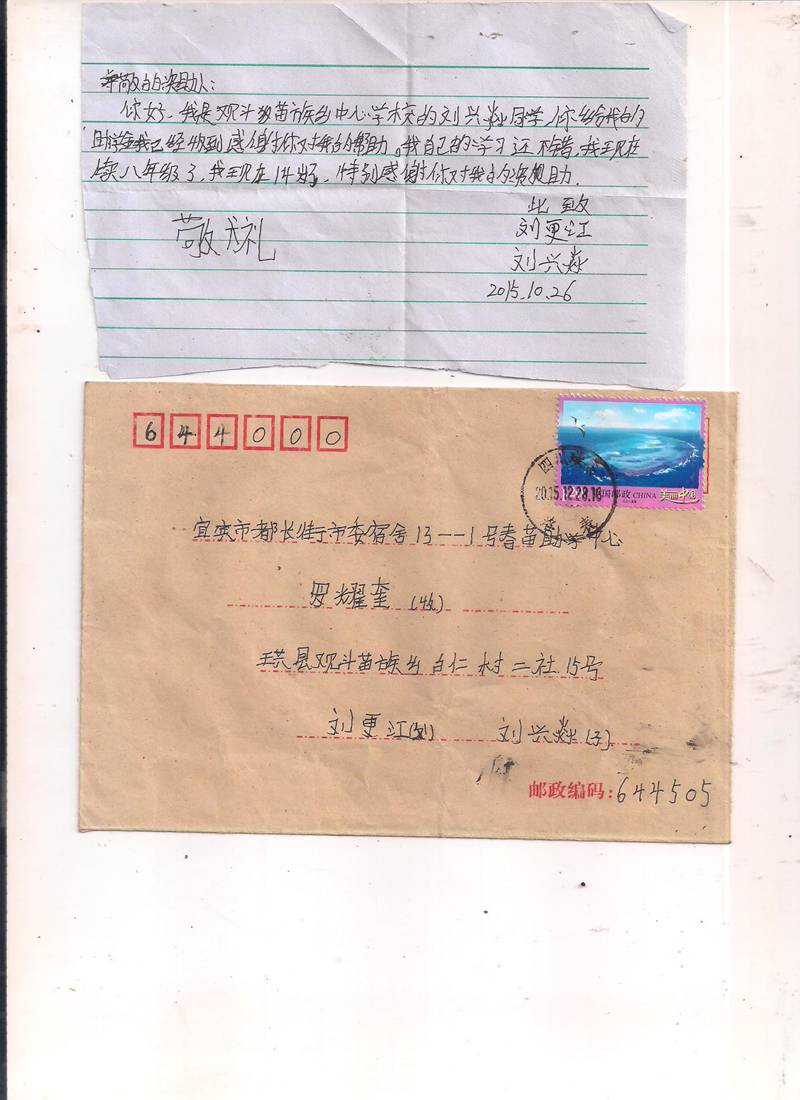 尊敬的资助人:
你好,我是观斗苗族乡中心学校的刘兴淼同学,你给我的
助学金我已经收到感谢你对我的帮助。我自己的学习还不错,我现在
读八年级了,我现在14岁了,特别感谢你对我的资助.
此致
敬礼
刘更江
刘兴淼
2015.10.26
644000
四川
2015.12.28.16
中国邮政 CHINA
美丽中国
宜宾市都长街市委宿舍13--1号春苗助学中心
罗耀奎(收)
珙县观斗苗族乡白仁村二社15号
刘更江 刘兴淼(子)
邮政编码:644505